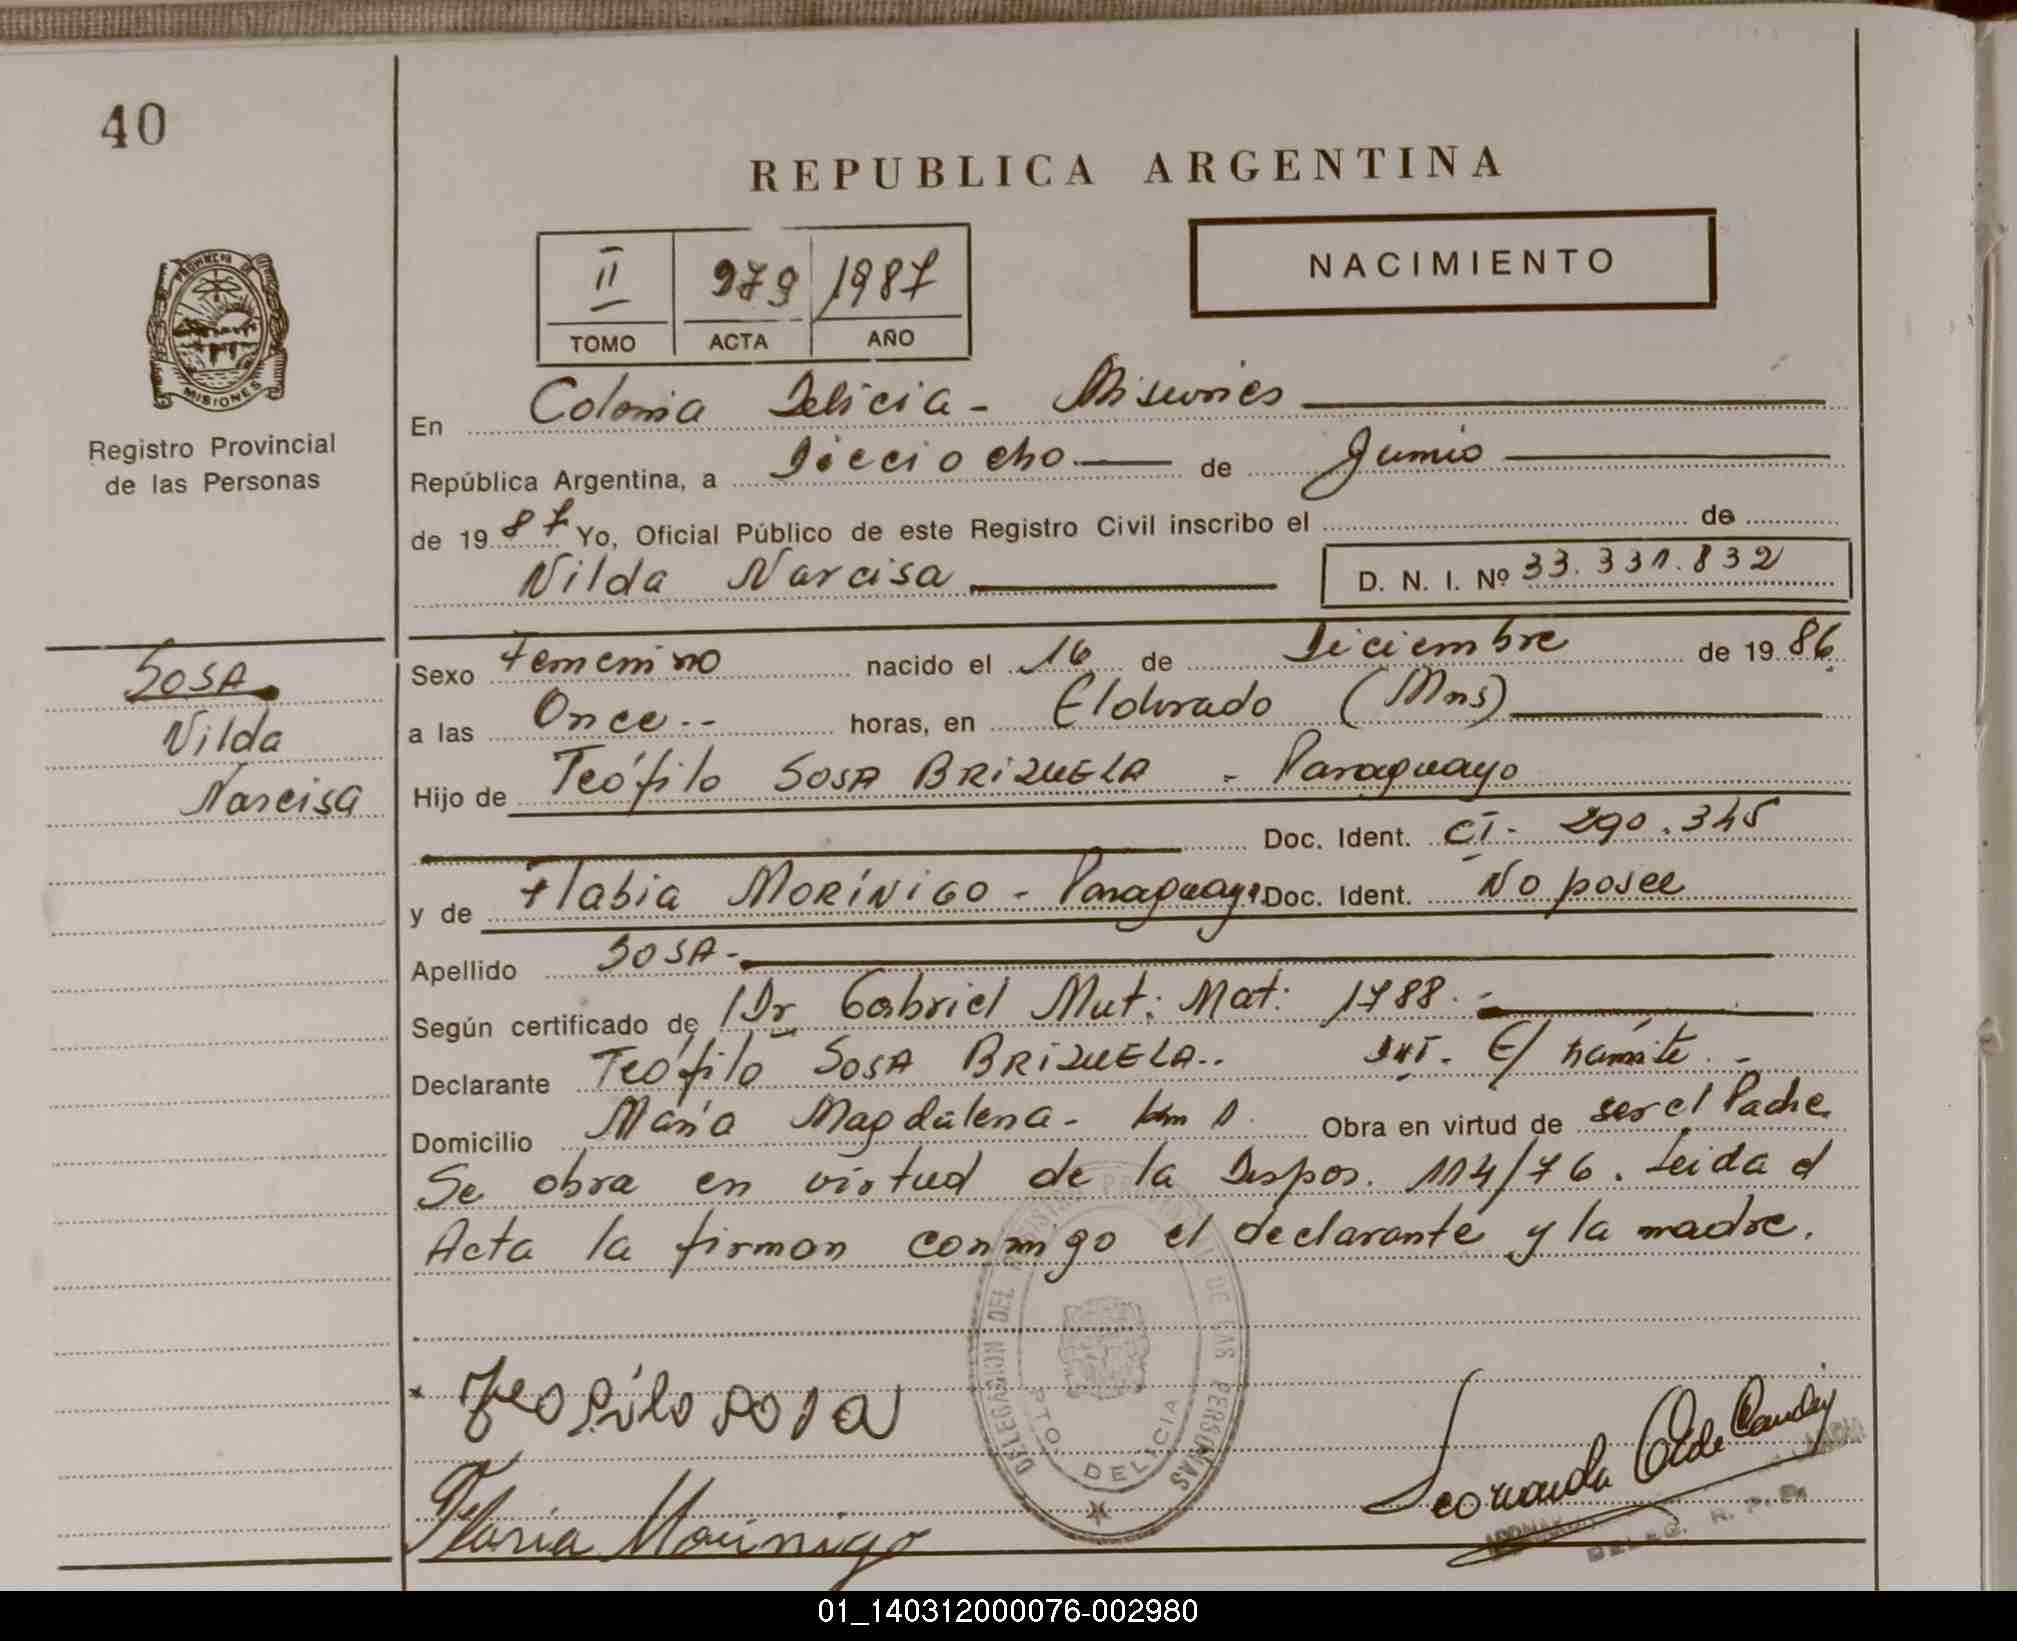 40
REPUBLICA ARGENTINA
II 979 1987
TOMO ACTA AÑO
NACIMIENTO
PROVINCIA DE
MISIONES
Registro Provincial
de las Personas
En Colonia Delicia - Misiones
República Argentina, a Dieciocho de Junio
de 1987 Yo, Oficial Público de este Registro Civil inscribo el de
Nilda Narcisa D. N. I. Nº 33.331.832
SOSA
Nilda
Narcisa
Sexo Femenino nacido el 16 de Diciembre de 1986.
a las Once.- horas, en Eldorado (Mns)
Hijo de Teófilo SOSA BRIZUELA - Paraguayo
Doc. Ident. CI- 290.345
y de Flabia MORÍNIGO - Paraguaya Doc. Ident. No posee
Apellido SOSA-
Según certificado de Dr Gabriel Mut: Mat: 1788.-
Declarante Teófilo SOSA BRIZUELA.. DNI- E/ trámite.-
Domicilio María Magdalena - km 0. Obra en virtud de ser el Padre
Se obra en virtud de la Dispos. 114/76. Leida el
Acta la firman conmigo el declarante y la madre.
DELEGACION DEL REGISTRO PROVINCIAL DE LAS PERSONAS
PTO. DELICIA
Teofilo sosa
Flavia Morinigo
Leonarda
DELEG. R. P. P.
01_140312000076-002980